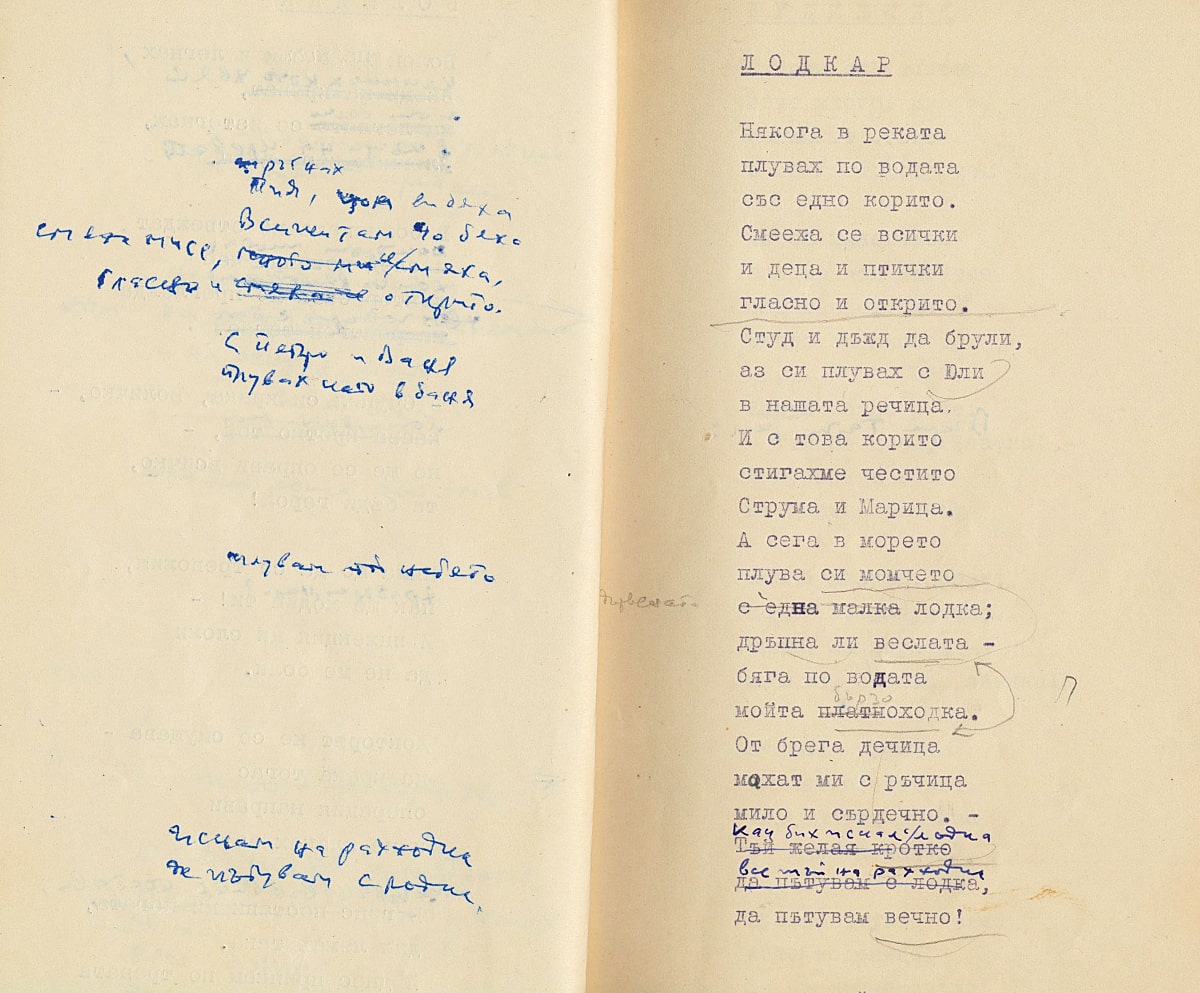 Пия, видяха
Всички там
открито.
С Петър и Ваня
плувах като в баня
плувам под небето
Искам на разходка
да пътувам с лодка.
ЛОДКАР
Някога в реката
плувах по водата
със едно корито.
Смееха се всички
и деца и птички
гласно и открито.
Студ и дъжд да брули,
аз си плувах с Юли
в нашата речица.
И с това корито
стигахме честито
Струма и Марица.
А сега в морето
плува си момчето
с една малка лодка;
дръпна ли веслата -
бяга по водата
бързо
мойта платноходка.
От брега дечица
махат ми с ръчица
мило и сърдечно. -
Как бих искал с лодка
Тъй желая кротко
все тъй на разходка
да пътувам с лодка,
да пътувам вечно!